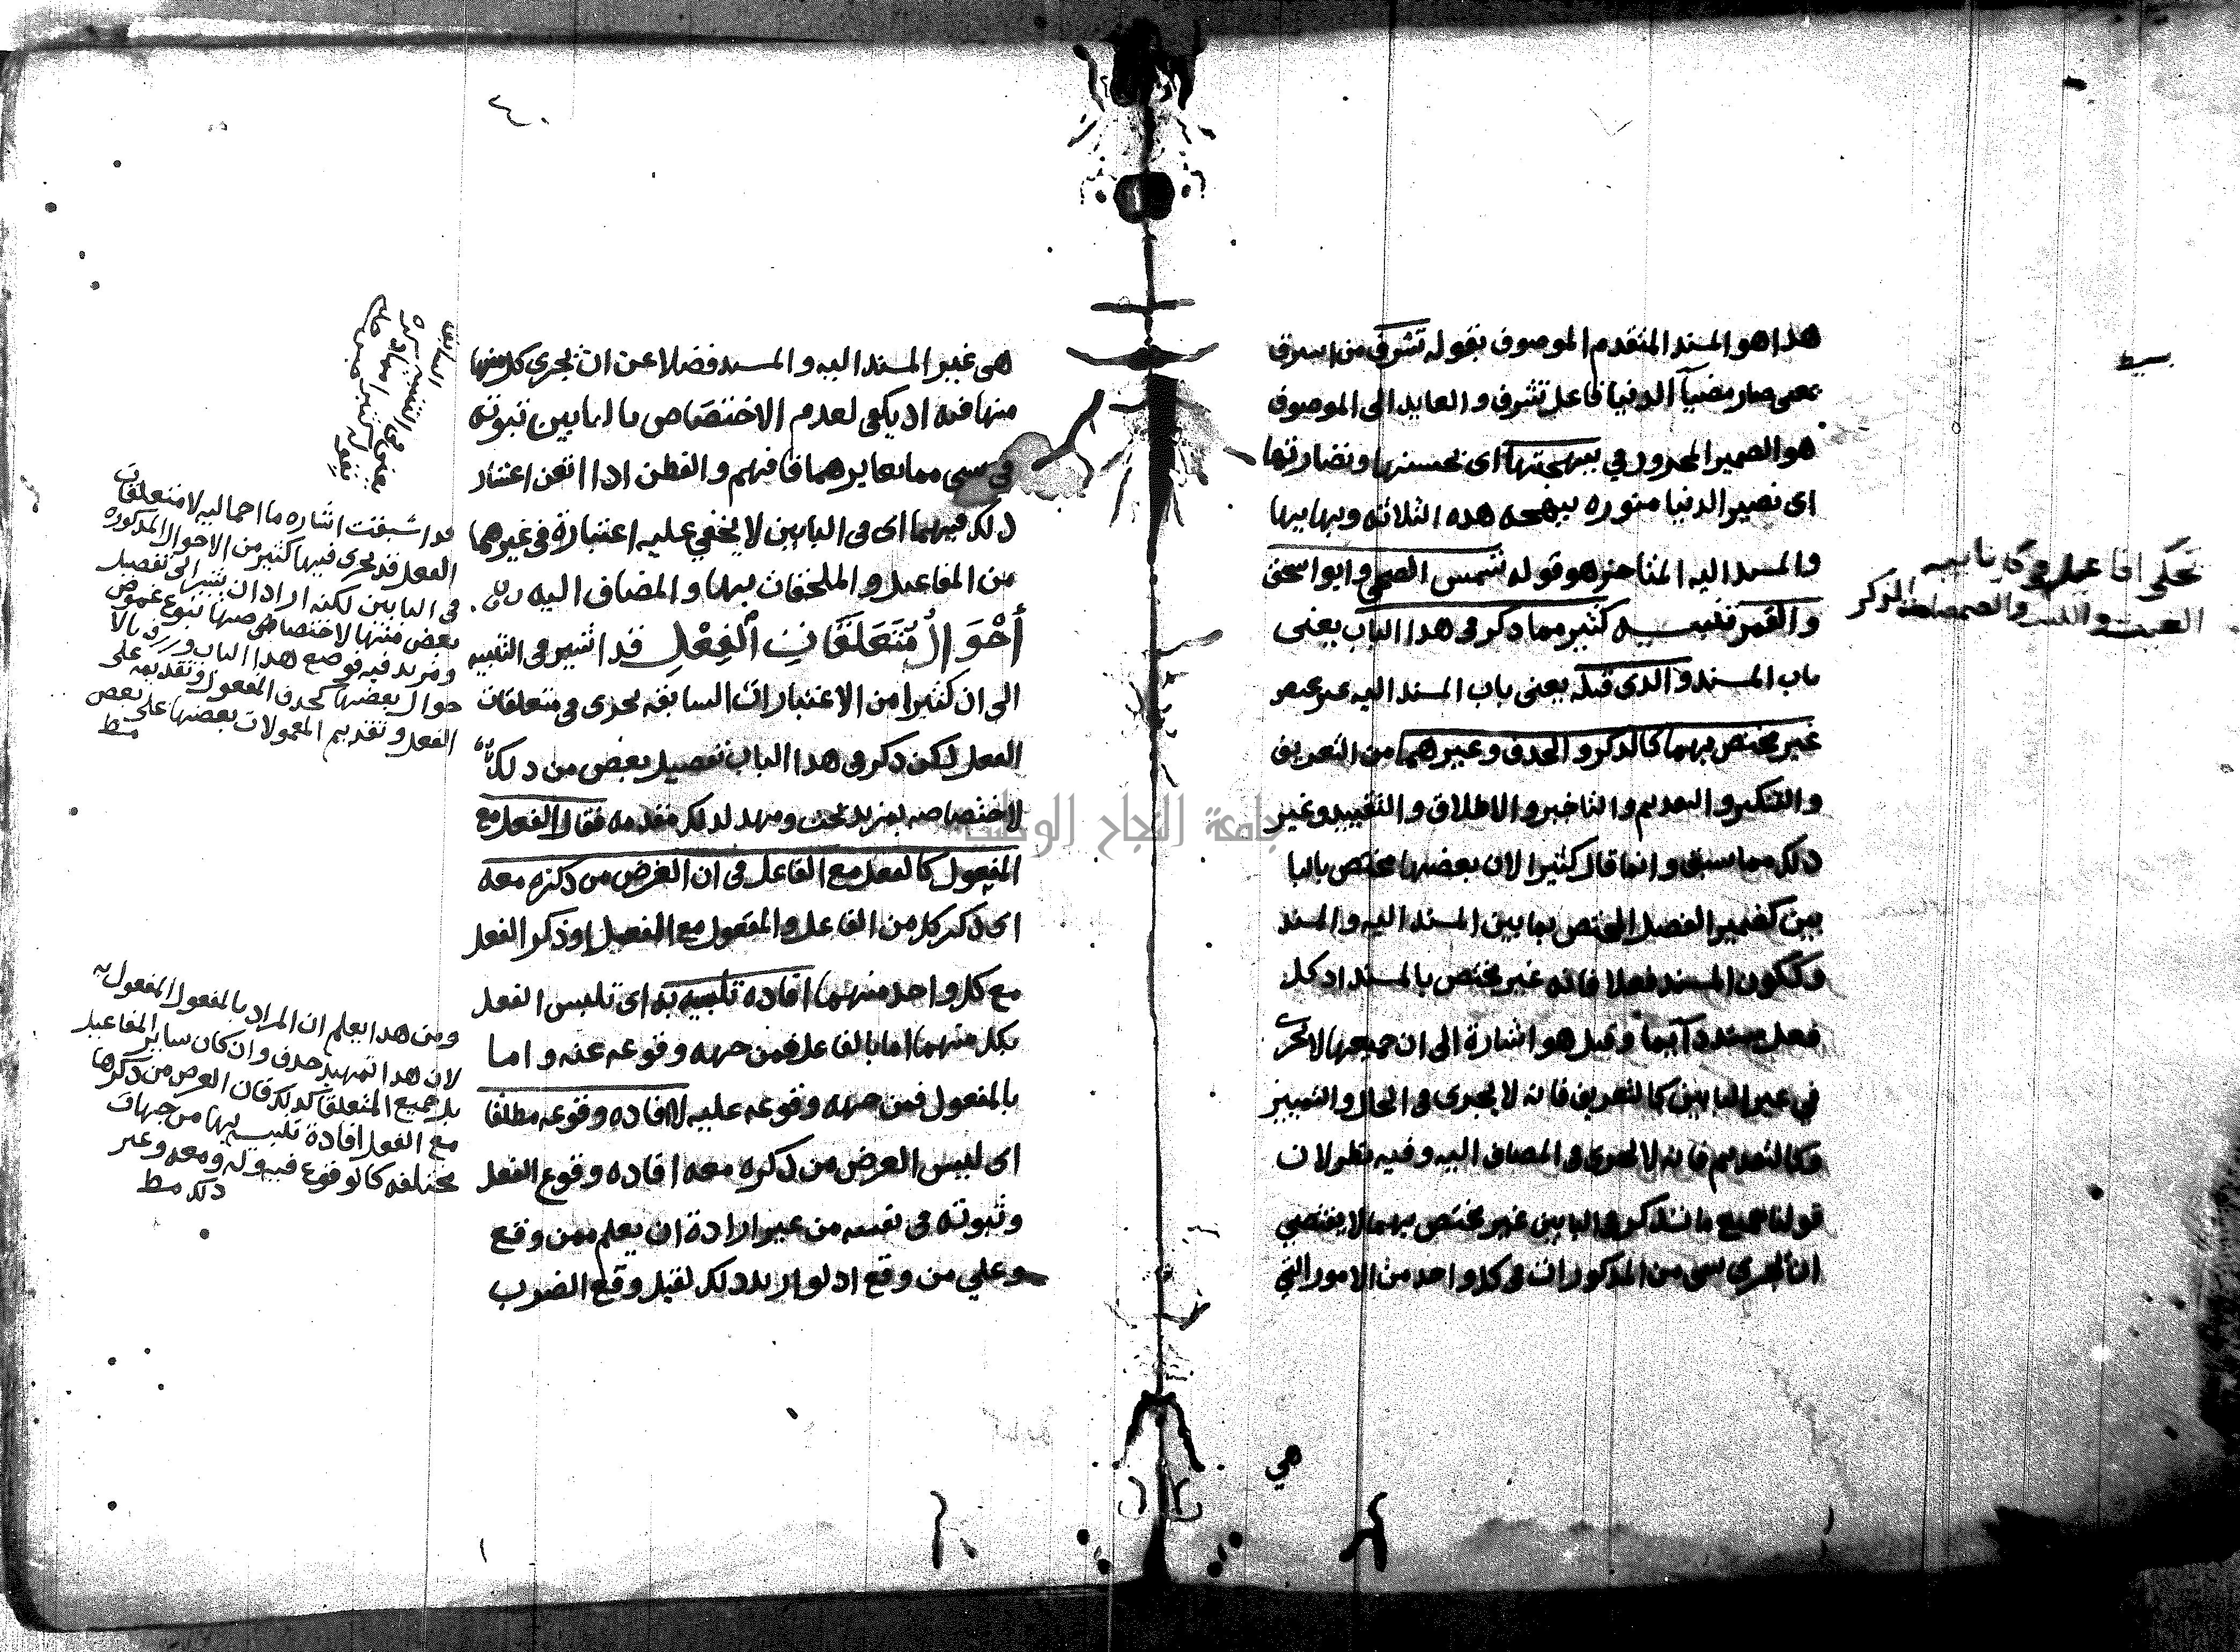 هذا هو المسند المتقدم الموصوف بقوله تشرق من اشرق
بمعنى صار مضيآ الدنيا فاعل تشرق والعايد الى الموصوف
هو الضمير المجرور في ببهجتها اى بحسنها ونضارتها
اى تصير الدنيا منوره ببهجه هذه الثلاثه وبهايها
والمسند اليه المتاخر هو قوله شمس الضحى وابو اسحق
والقمر تنبيه كثير مما ذكر فى هذا الباب يعنى
باب المسند والذى قبله يعنى باب المسند اليه
غير مختص بهما كالذكر والحذف وغيرهما من التعريف
والتنكير والتقديم والتاخير والاطلاق والتقييد وغير
ذلك مما سبق وانما قال كثير لان بعضها مختص بالبا
بين كضمير الفصل المختص بما بين المسند اليه والمسند
وككون المسند فعلا فانه غير مختص بالمسند اذ كل
فعل مسند دآيما وقيل هو اشارة الى ان جميعها لا تجرى
في غير البابين كالتعريف فانه لا يجرى فى الحال والتمييز
وكالتقديم فانه لا يجرى فى المضاف اليه وفيه نظر لان
قولنا جميع ما نذكر فى البابين غير مختص بهما لا يقتضى
ان يجرى شى من المذكورات فى كل واحد من الامور التي
هي
بسيط
العبث
٤٠
هى غير المسند اليه والمسند فضلا عن ان يجرى كل منها
منها فيه اذ يكفى لعدم الاختصاص بالبابين ثبوته
فى شى مما يغايرهما فافهم والفطن اذا اتقن اعتبار
ذلك فيهما اى فى البابين لا يخفي عليه اعتباره فى غيرهما
من المفاعيل والملحقات بها والمضاف اليه
أحوال متعلقات الفعل قد اشير فى التنبيه
الى ان كثيرا من الاعتبارات السابقه يجرى فى متعلقات
الفعل لكن ذكر فى هذا الباب تفصيل بعض من ذلك
لاختصاصه بمزيد بحث ومهد لذلك مقدمه فقال الفعل مع
المفعول كالفعل مع الفاعل فى ان الغرض من ذكره معه
اى ذكر كل من الفاعل والمفعول مع الفعل او ذكر الفعل
مع كل واحد منهما افاده تلبسه به اى تلبس الفعل
بكل منهما اما بالفاعل فمن جهه وقوعه عنه واما
بالمفعول فمن جهه وقوعه عليه لا افاده وقوعه مطلقا
اى ليس الغرض من ذكره معه افاده وقوع الفعل
وثبوته فى نفسه من غير ارادة ان يعلم ممن وقع
وعلى من وقع اذ لو اريد ذلك لقيل وقع الضرب
قد اسبقت اشاره ما اجماليه لا متعلقات
الفعل قد يجرى فيها كثير من الاحوال المذكوره
فى البابين لكنه اراد ان يشير الى تفصيل
بعض منها لاختصاصها بنوع غموض
ومزيد فيه فوضع هذا الباب
حوال بعضها كحذف المفعول وتقديمه على
الفعل وتقديم المعمولات بعضها على بعض
مط
ومن هذا يعلم ان المراد بالمفعول المفعول به
لان هذا تمهيد حذف وان كان ساير المفاعيل
بل جميع المتعلقا كذلك فان الغرض من ذكرها
مع الفعل افادة تلبسه بها من جهات
مختلفه كالوقوع فيه وله ومعه وغير
ذلك مط
جامعة النجاح الوطنية